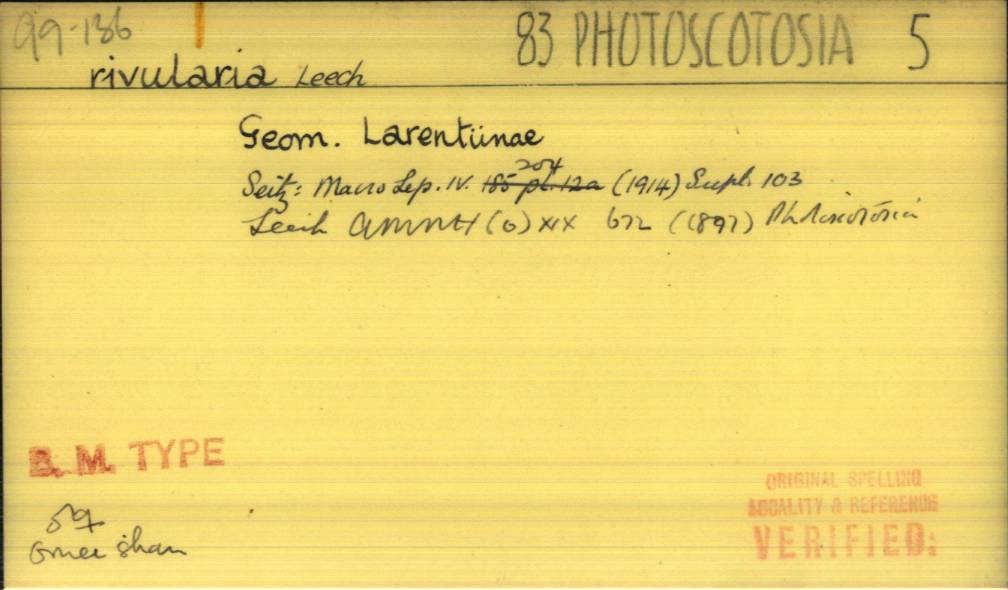 99-136
83 PHOTOSCOTOSIA 5
rivularia Leech
Geom. Larentiinae
204
Seitz: Macro Lep. IV. 185 pl. 12a (1914) Supl. 103
Leech AMNH (6) XIX 672 (1897) Photoscotosia
B. M. TYPE
♂♀
Omei Shan
ORIGINAL SPELLING
LOCALITY & REFERENCE
VERIFIED: